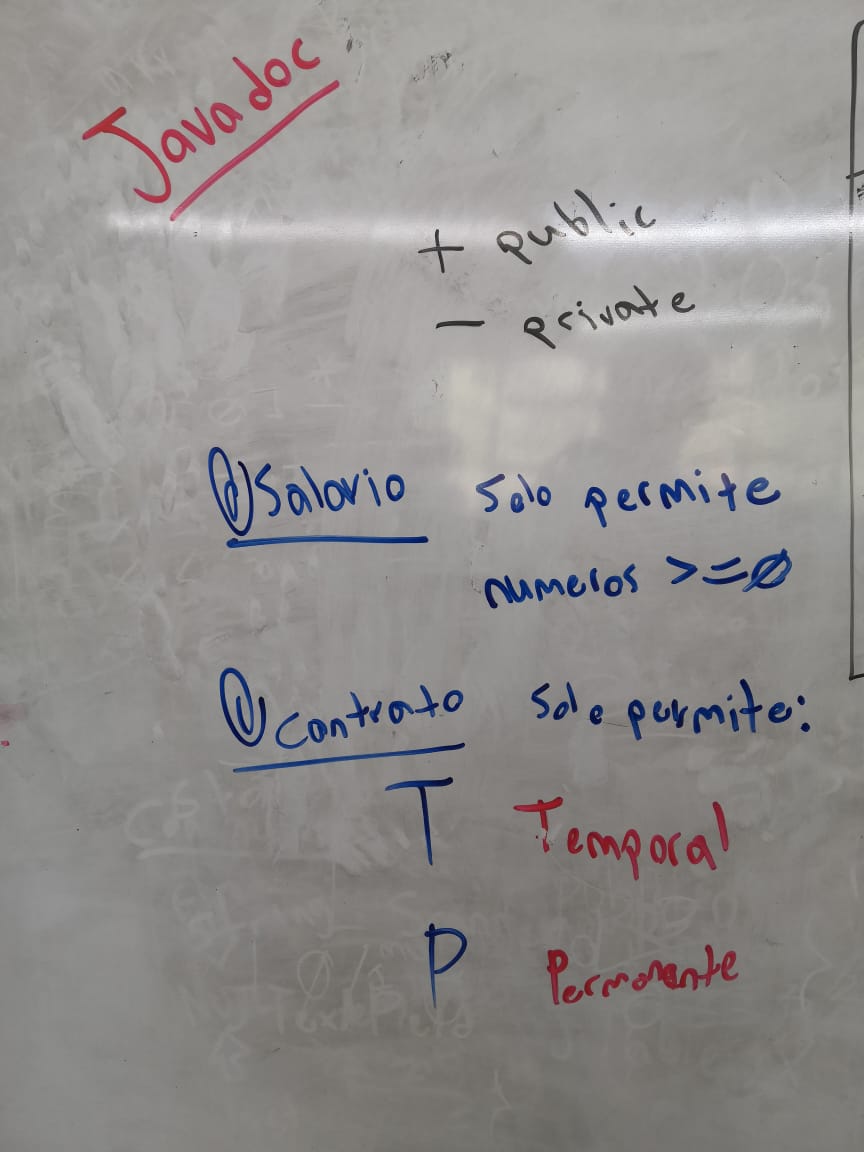 Javadoc
+ public
- private
@Salario Solo permite
numeros >=0
@Contrato Solo permite:
T Temporal
P Permanente